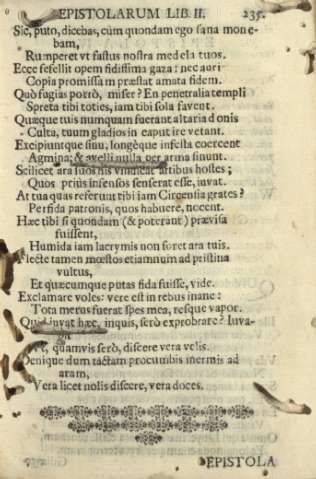 EPISTOLARUM LIB. II. 235.
Sic, puto, dicebas, cùm quondam ego sana mone-
bam,
Rumperet ut fastus nostra medela tuos.
Ecce fefellit opem fidissima gaza: nec auri
Copia promissam præstat amata fidem.
Quò fugias porrò, miser? En penetralia templi
Spreta tibi toties, iam tibi sola favent.
Quæque tuis numquam fuerant altaria donis
Culta, tuum gladios in caput ire vetant.
Excipiuntque sinu, longèque infesta coercent
Agmina; & avelli nulla per arma sinunt.
Scilicet ara suos his vindicat artibus hostes;
Quos priùs infensos senserat esse, iuvat.
At tua quas referunt tibi iam Circensia grates?
Perfida patronis, quos habuere, nocent.
Hæc tibi si quondam (& poterant) prævisa
fuissent,
Humida iam lacrymis non foret ara tuis.
Flecte tamen mœstos etiamnum ad pristina
vultus,
Et quæcumque putas fida fuisse, vide.
Exclamare voles: vere est in rebus inane:
Tota merus fuerat spes mea, resque vapor.
Quid iuvat hæc, inquis, serò exprobrare? Iuva-
quamvis serò, discere vera velis.
Denique dum tactam procumbis inermis ad
aram,
Vera licet nolis discere, vera doces.
EPISTOLA